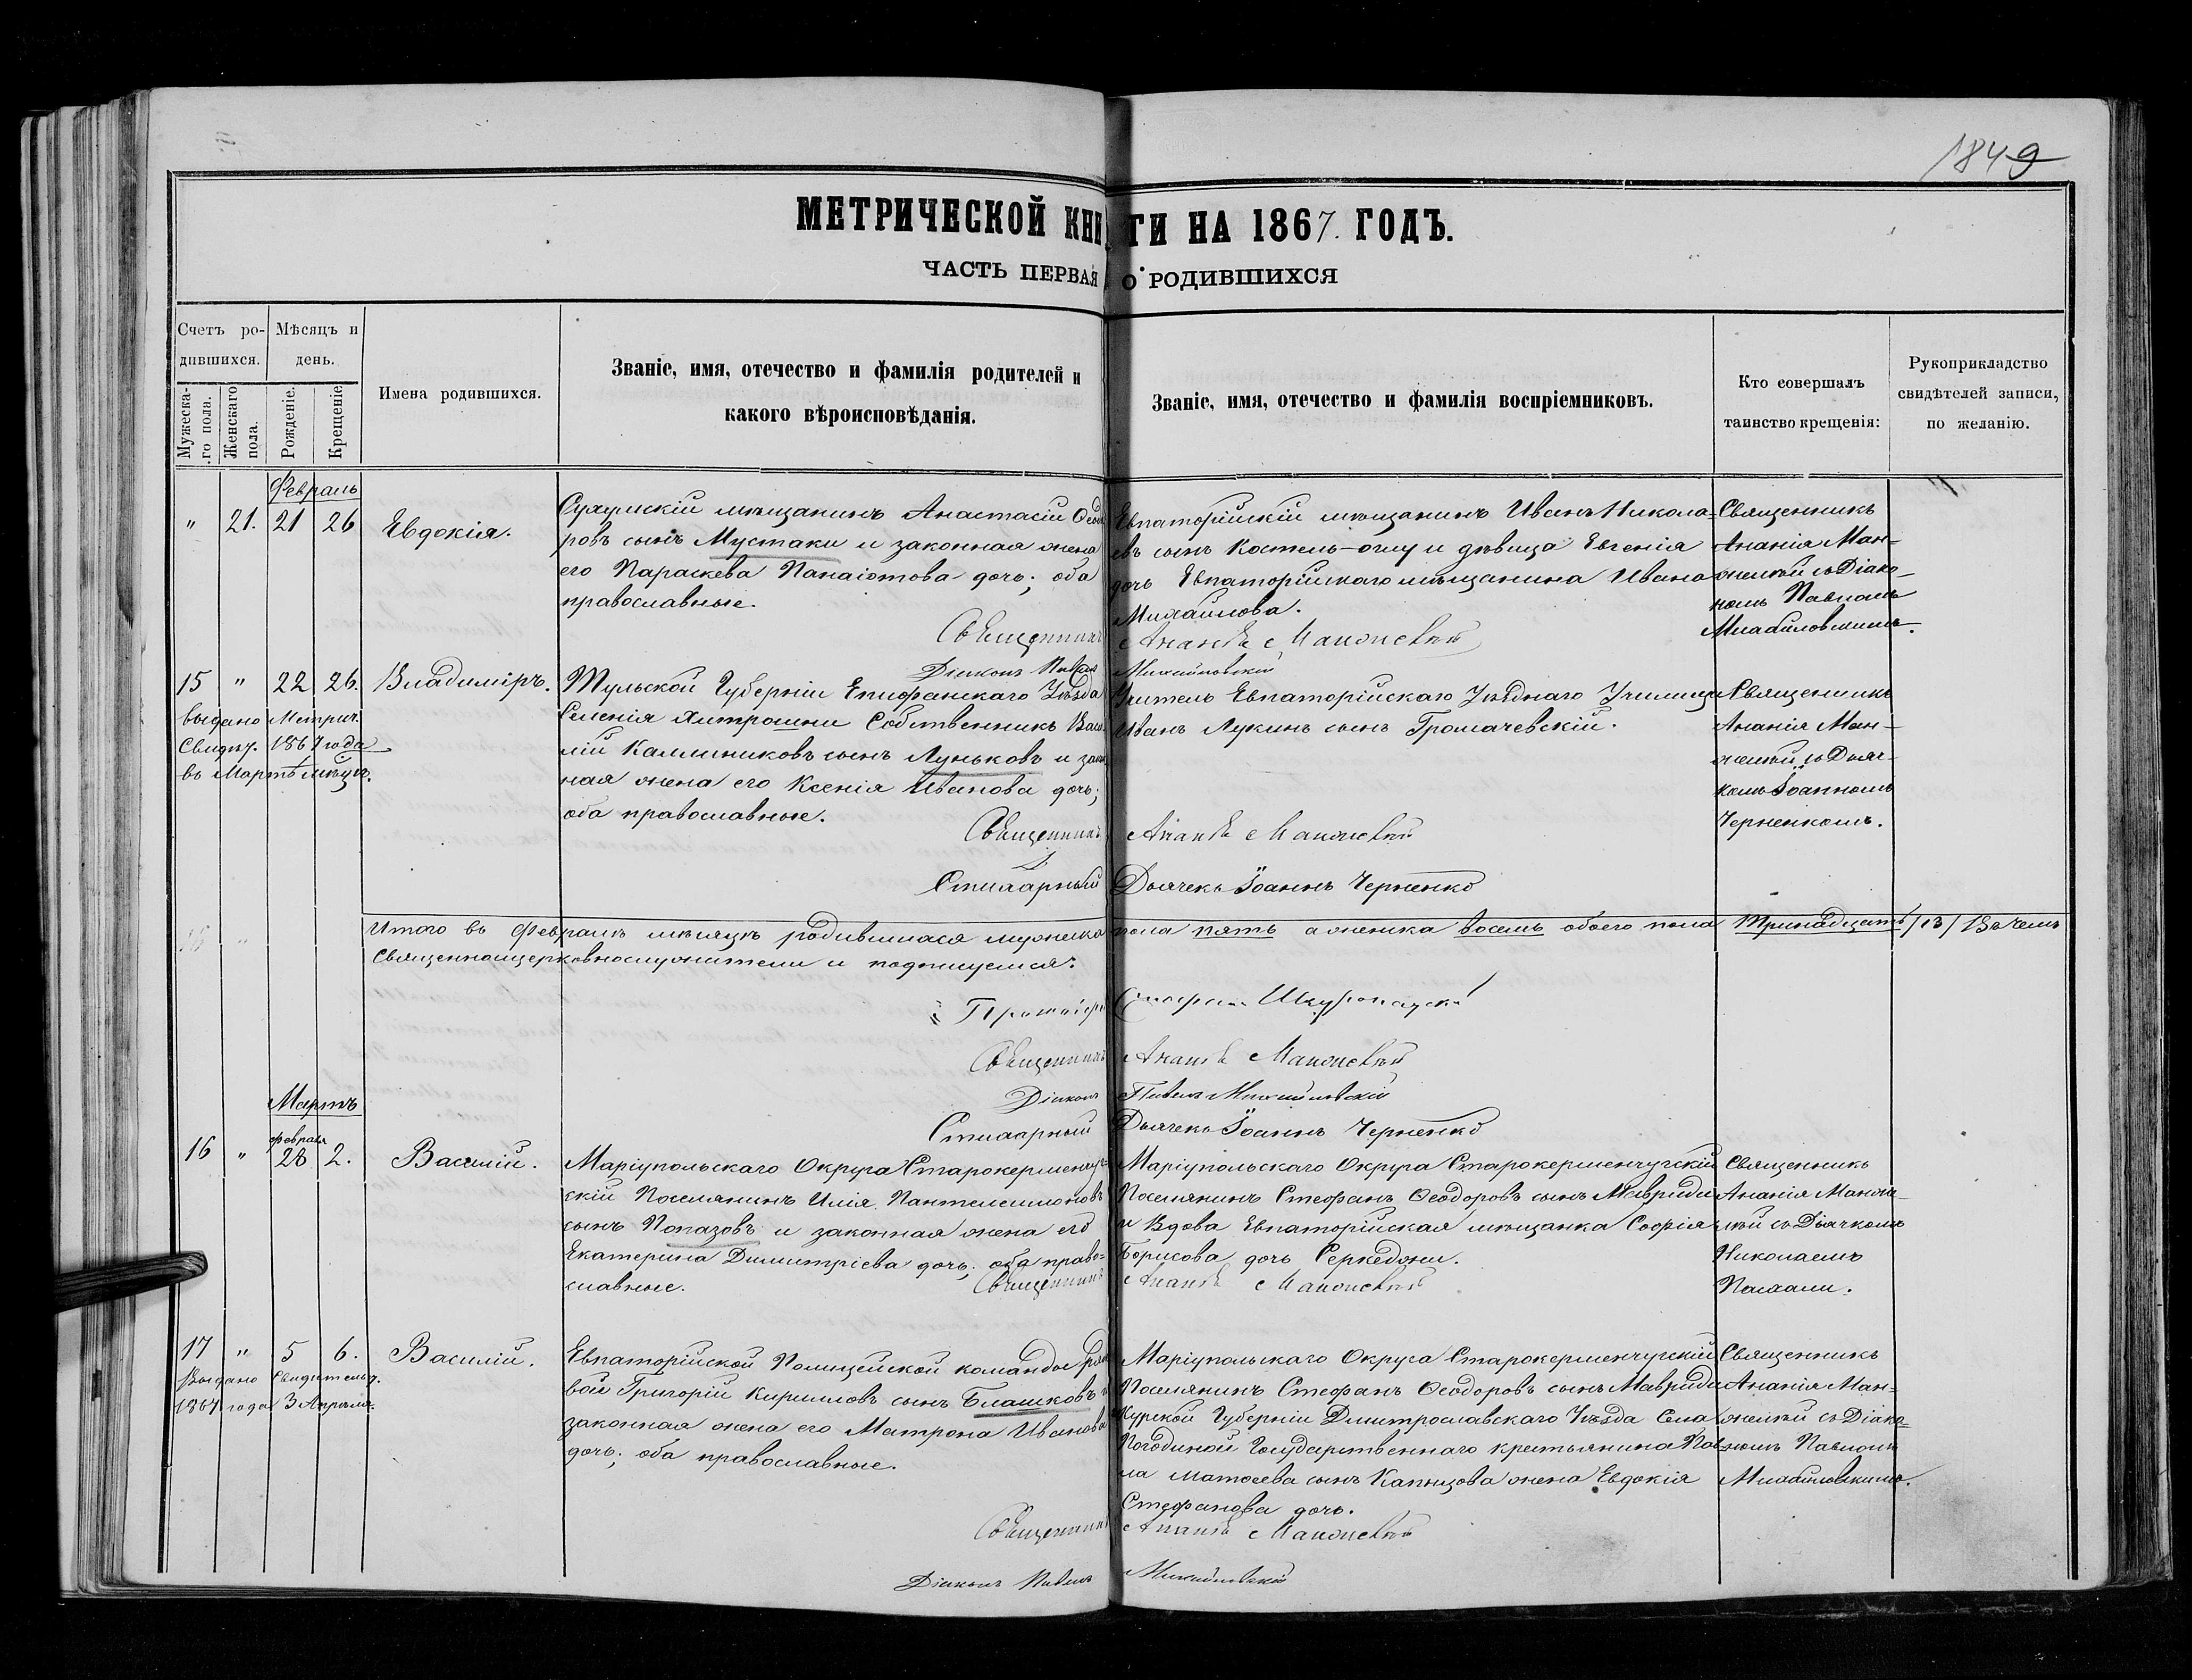 1849
МЕТРИЧЕСКОЙ КНИГИ НА 1867. ГОДЪ.
ЧАСТЬ ПЕРВАЯ О РОДИВШИХСЯ
Счетъ ро-
дившихся.
Мужеска-
го пола.
Женскаго
пола.
Мѣсяцъ и
день.
Рожденіе.
Крещеніе
Имена родившихся.
Званіе, имя, отечество и фамилія родителей и
какого вѣроисповѣданія.
Званіе, имя, отечество и фамилія воспріемниковъ.
Кто совершалъ
таинство крещенія:
Рукоприкладство
свидѣтелей записи,
по желанію.
Февраль
" 21. 21 26
Евдокія.
Сухумскій мѣщанинъ Анастасій Ѳеодо
ровъ сынъ Мустаки и законная жена
его Параскева Панаіотова дочь; оба
православные.
Евпаторійскій мѣщанинъ Иванъ Никола=
евъ сынъ Костель-оглу и дѣвица Евгенія
дочь Евпаторійскаго мѣщанина Ивана
Михайлова.
Священникъ
Ананія Ман-
желѣй съ Діако-
номъ Павломъ
Михайловскимъ.
Священникъ
Діаконъ Павелъ Михайловскій
15 " 22 26.
Владиміръ.
Выдано Метрич.
Свидѣт. 1867 года
въ Мартѣ мѣсяц.
Тульской Губерніи Епифанскаго Уѣзда
Селенія Хитрошни Собственникъ Васи
лій Каллиниковъ сынъ Луньковъ и закон
ная жена его Ксенія Иванова дочь;
оба православные.
Учитель Евпаторійскаго Уѣзднаго Училища
Иванъ Лукинъ сынъ Громачевскій.
Священникъ
Ананія Ман-
желѣй съ Дьяч-
комъ Іоанномъ
Черненкомъ.
Священникъ
Стихарный Дьячекъ Іоаннъ Черненко
Итого въ Февралѣ мѣсяцѣ родившихся мужеска пола пять а женска восемь обоего пола тринадцать /13/ Въ чемъ
Священноицерковнослужители и подпишемся:
Протоіерей
Священникъ
Діаконъ Павелъ Михайловскій
Стихарный Дьячекъ Іоаннъ Черненко
Мартъ
Февраля
16 " 28 2.
Василій.
Маріупольскаго Округа Старокерменчуг=
скій Поселянинъ Илія Пантелеимоновъ
сынъ Попазовъ и законная жена его
Екатерина Димитріева дочь; оба право=
славные.
Маріупольскаго Округа Старокерменчугскій
Поселянинъ Стефанъ Ѳеодоровъ сынъ Мавриди
и Вдова Евпаторійская мѣщанка Софія
Борисова дочь Серкеджи.
Священникъ
Ананія Манже-
лѣй съ Дьячкомъ
Николаемъ
Пасхали.
Священникъ
17 " 5 6.
Василій.
Выдано Свидѣтельст.
1867 года 3 Апрѣля.
Евпаторійской Полицейской команды рядо
вой Григорій Кирилловъ сынъ Блашковъ и
законная жена его Матрона Иванова
дочь; оба православные.
Маріупольскаго Округа Старокерменчугскій
Поселянинъ Стефанъ Ѳеодоровъ сынъ Мавриди
Курской Губерніи Дмитрославскаго Уѣзда Села
Погодиной Государственнаго крестьянина Пав=
ла Матѳеева сынъ Капнизова жена Евдокія
Стефанова дочь.
Священникъ
Ананія Ман=
желѣй съ Діако=
номъ Павломъ
Михайловскимъ.
Священникъ
Діаконъ Павелъ Михайловскій